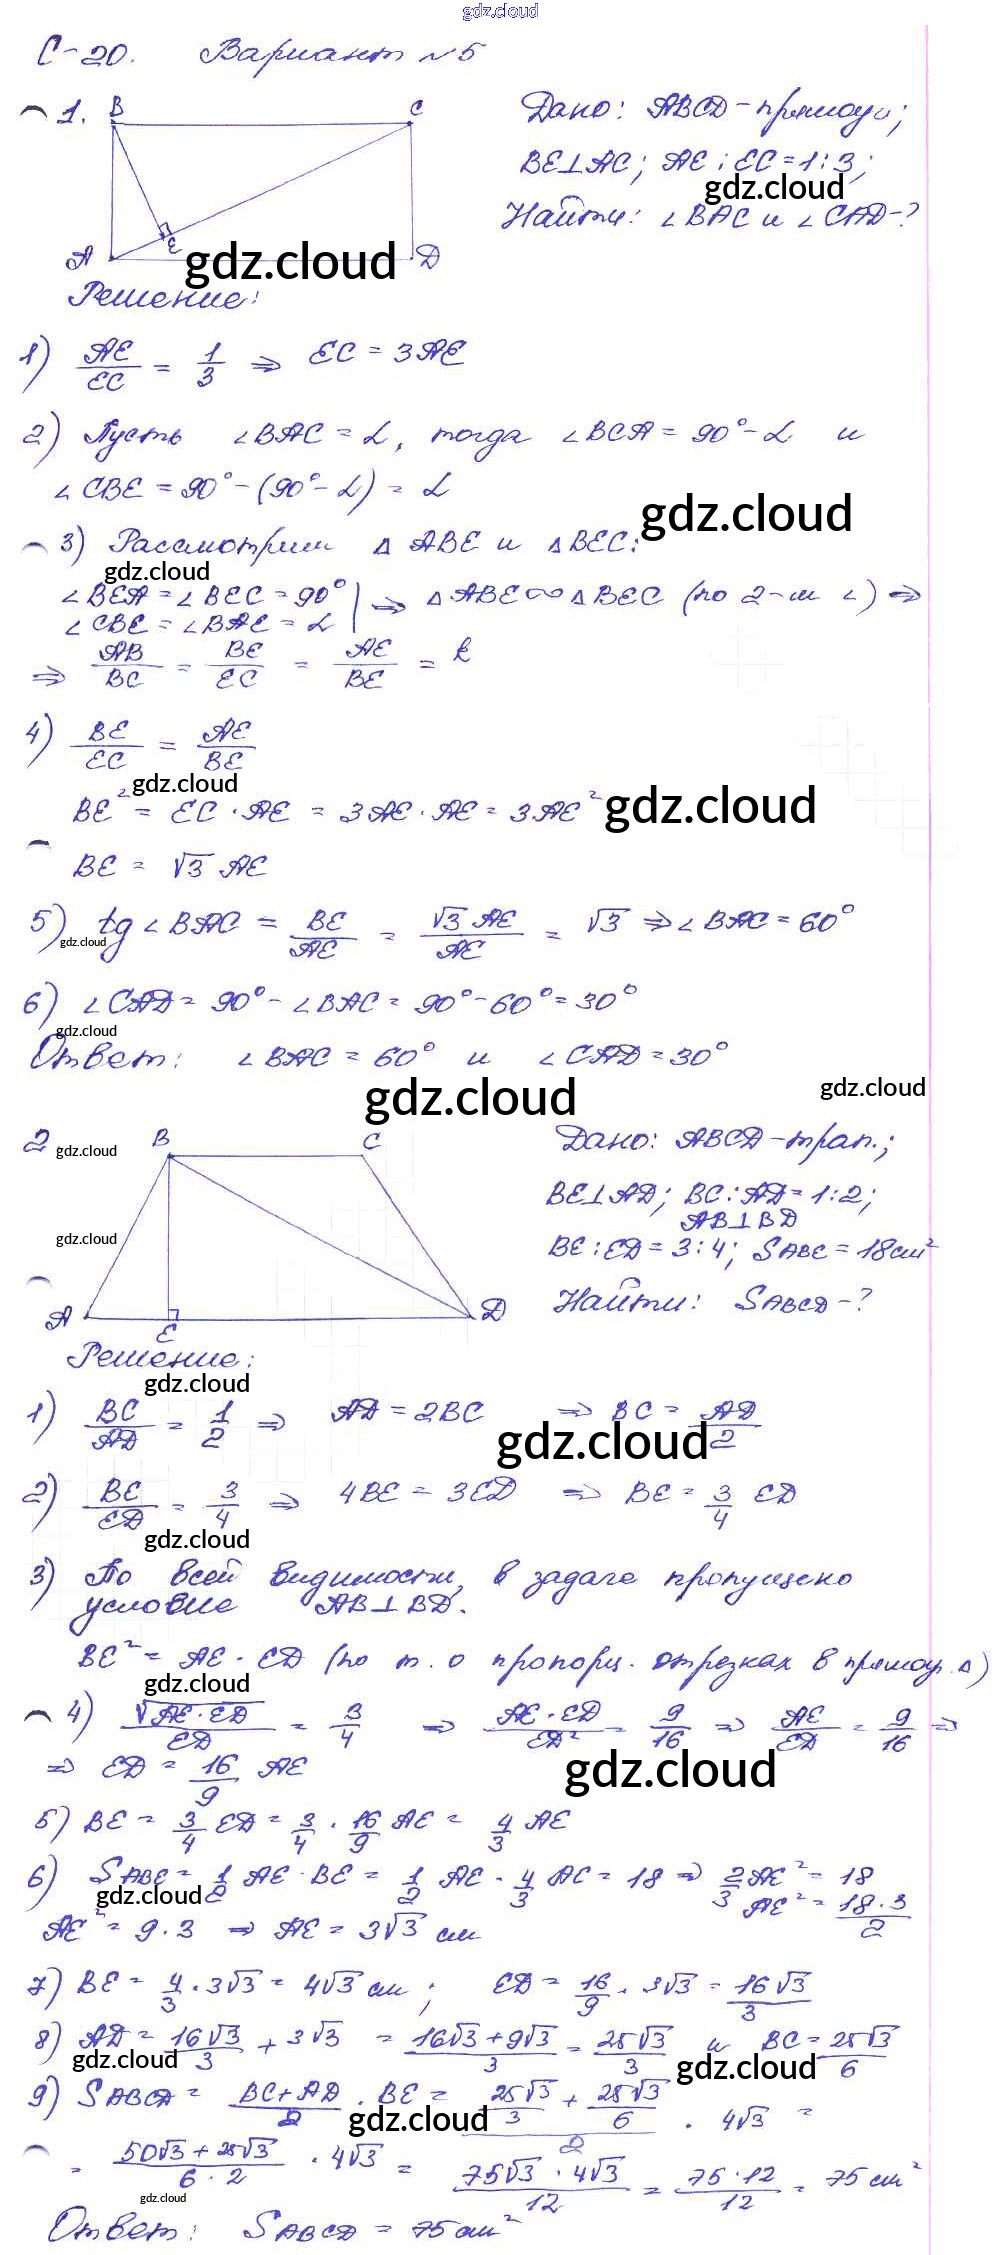 gdz.cloud
С-20. Вариант №5
1. B C Дано: ABCD-прямоуг;
BE⊥AC; AE:EC=1:3;
gdz.cloud
Найти: ∠BAC и ∠CAD-?
A E gdz.cloud D
Решение:
1) AE/EC = 1/3 ⇒ EC = 3AE
2) Пусть ∠BAC = α, тогда ∠BCA = 90° - α и
∠CBE = 90° - (90° - α) = α
gdz.cloud
3) Рассмотрим △ABE и △BEC:
gdz.cloud
∠BEA = ∠BEC = 90° | ⇒ △ABE∾△BEC (по 2-м ∠) ⇒
∠CBE = ∠BAE = α
⇒ AB/BC = BE/EC = AE/BE = k
4) BE/EC = AE/BE
gdz.cloud
BE² = EC·AE = 3AE·AE = 3AE² gdz.cloud
BE = √3 AE
5) tg∠BAC = BE/AE = √3 AE/AE = √3 ⇒ ∠BAC = 60°
gdz.cloud
6) ∠CAD = 90° - ∠BAC = 90° - 60° = 30°
gdz.cloud
Ответ: ∠BAC = 60° и ∠CAD = 30°
gdz.cloud gdz.cloud
2 gdz.cloud B C Дано: ABCD-трап.;
BE⊥AD; BC:AD=1:2;
AB⊥BD
gdz.cloud
BE:ED=3:4; SABE=18см²
A E D Найти: SABCD-?
Решение:
gdz.cloud
1) BC/AD = 1/2 ⇒ AD = 2BC ⇒ BC = AD/2
gdz.cloud
2) BE/ED = 3/4 ⇒ 4BE = 3ED ⇒ BE = 3/4 ED
gdz.cloud
3) По всей видимости, в задаче пропущено
условие AB⊥BD.
BE² = AE·ED (по т. о пропорц. отрезках в прямоуг. △)
gdz.cloud
4) √AE·ED/ED = 3/4 ⇒ AE·ED/ED² = 9/16 ⇒ AE/ED = 9/16 ⇒
⇒ ED = 16/9 AE gdz.cloud
5) BE = 3/4 ED = 3/4 · 16/9 AE = 4/3 AE
6) SABE = 1/2 AE·BE = 1/2 AE · 4/3 AE = 18 ⇒ 2/3 AE² = 18
gdz.cloud
AE² = 18·3/2
AE² = 9·3 ⇒ AE = 3√3 см
7) BE = 4/3 · 3√3 = 4√3 см; ED = 16/9 · 3√3 = 16√3/3
8) AD = 16√3/3 + 3√3 = 16√3+9√3/3 = 25√3/3 и BC = 25√3/6
gdz.cloud gdz.cloud
9) SABCD = BC+AD/2 · BE = 25√3/3 + 25√3/6 / 2 · 4√3 =
gdz.cloud
= 50√3 + 25√3/6·2 · 4√3 = 75√3 · 4√3/12 = 75·12/12 = 75 см²
gdz.cloud
Ответ: SABCD = 75 см²